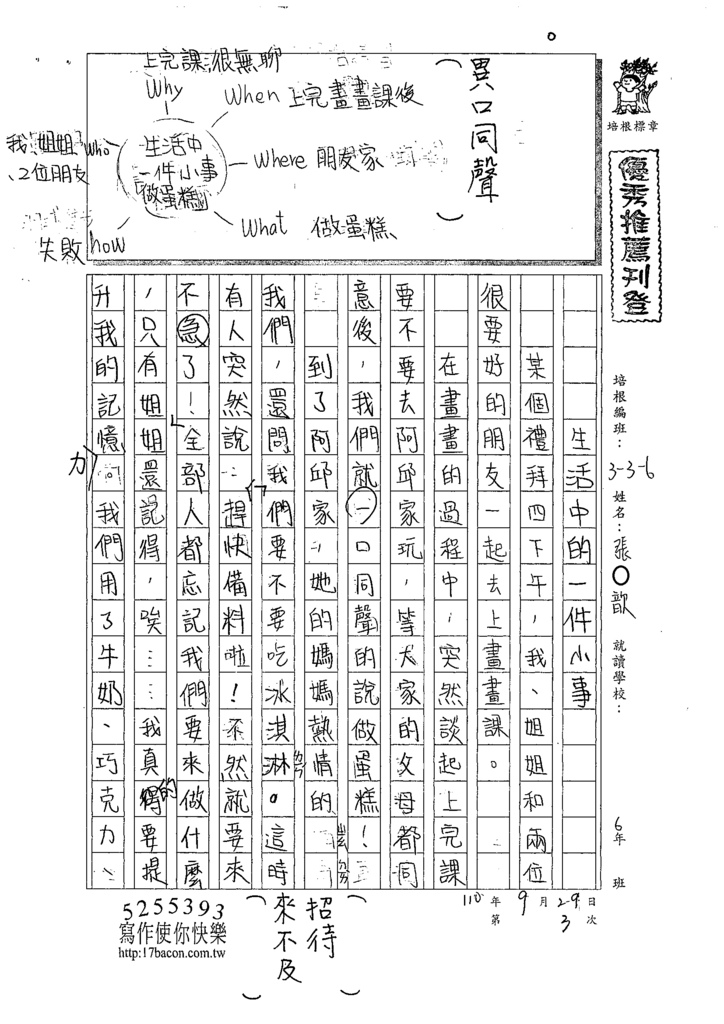 培根標章
優秀推薦刊登
培根編班：3-3-6 姓名：張〇歆 就讀學校： 6年 班
110年9月29日
第3次
異口同聲
上完課很無聊
Why
When 上完畫畫課後
Where 朋友家
What 做蛋糕
how 失敗
who 我、姐姐
、2位朋友
生活中
一件小事
(做蛋糕)
生活中的一件小事
某個禮拜四下午，我、姐姐和兩位
很要好的朋友一起去上畫畫課。
在畫畫的過程中，突然談起上完課
要不要去阿邱家玩，等大家的父母都同
意後，我們就一口同聲的說做蛋糕！
到了阿邱家，她的媽媽熱情的ㄓㄠ ㄉㄞ
我們，還問我們要不要吃冰淇淋。這時
有人突然說：「趕快備料啦！不然就要來
不急了！」全部人都忘記我們要來做什麼
，只有姐姐還記得，唉……我真的要提
升我的記憶力
我們用了牛奶、巧克力、
招待
來不及
5255393
寫作使你快樂
http://17bacon.com.tw